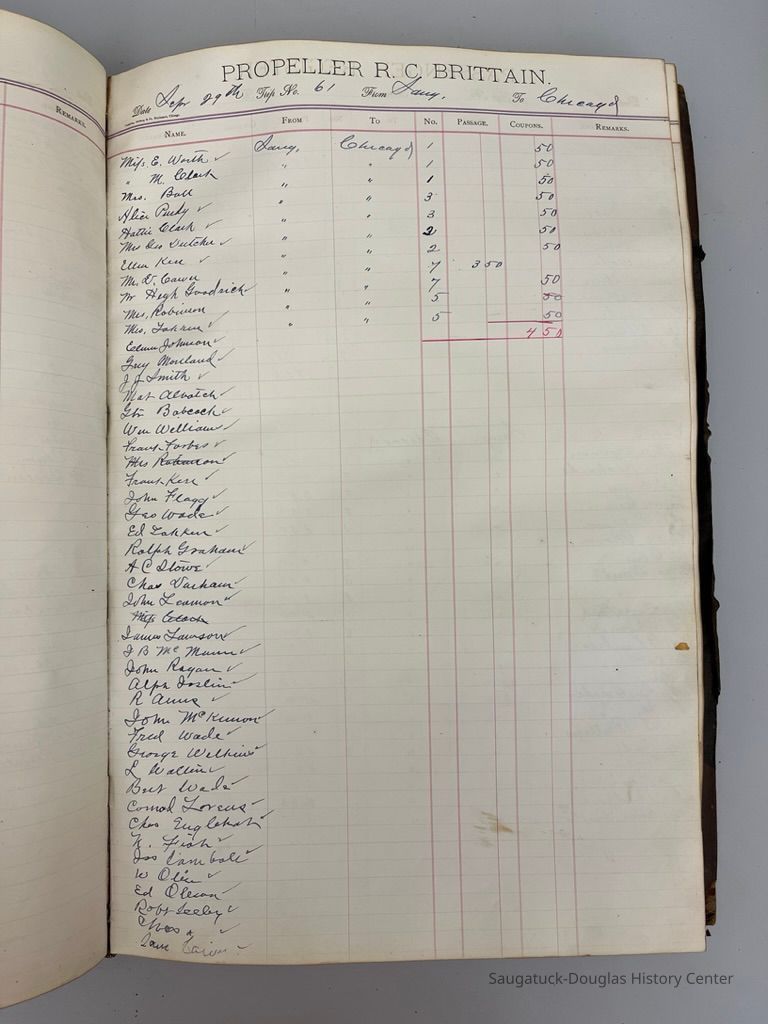 PROPELLER R. C. BRITTAIN.
Date Sept 29th Trip No. 61 From Saug. To Chicago
REMARKS.
NAME. FROM TO NO. PASSAGE. COUPONS. REMARKS.
Miss E. Worth ✓ Saug. Chicago 1 50
" M. Clark " " 1 50
Mrs. Ball " " 1 50
Alice Purdy ✓ " " 3 50
Hattie Clark ✓ " " 3 50
Mrs Geo Dutcher ✓ " " 2 50
Ellen Kerr ✓ " " 2 50
Mr. D. " " 7 3 50
W Hugh Goodrich ✓ " " 7 50
Mrs. Robinson " " 5 50
Mrs. Takken ✓ " " 5 50
Edwin Johnson ✓ 4 50
Guy Moreland ✓
J J Smith ✓
Mat
Geo Babcock ✓
Wm Williams ✓
Frank Forbes ✓
Mrs Robinson
Frank Kerr ✓
John Flagg ✓
Geo Wade ✓
Ed Takken ✓
Ralph Graham ✓
A C Stowe ✓
Chas
John Leamon ✓
Miss Clark
James Lawson ✓
J B McMunn ✓
John Ragan ✓
Alph Joslin ✓
R Anns ✓
John McKinnon ✓
Fred Wade ✓
George Watkins ✓
L Wallin ✓
Bert Wade ✓
Conrad Lorens ✓
Chas ✓
N. Fish ✓
Jos ✓
W Olin ✓
Ed Oleson ✓
Robt Seeley ✓
Chas " ✓
Sam
Saugatuck-Douglas History Center